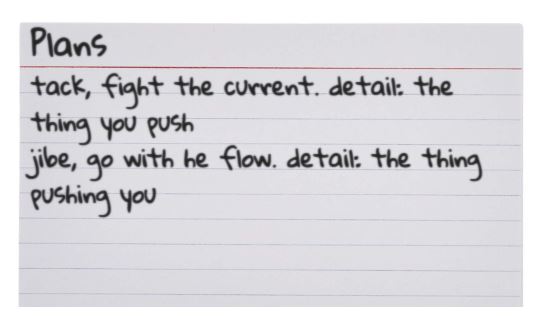 Plans
tack, fight the current. detail: the
thing you push
jibe, go with he flow. detail: the thing
pushing you